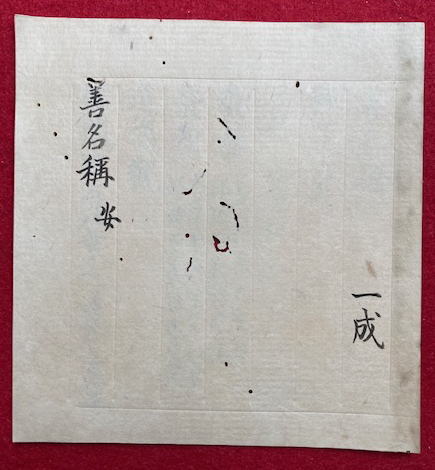 一成
善名稱
安